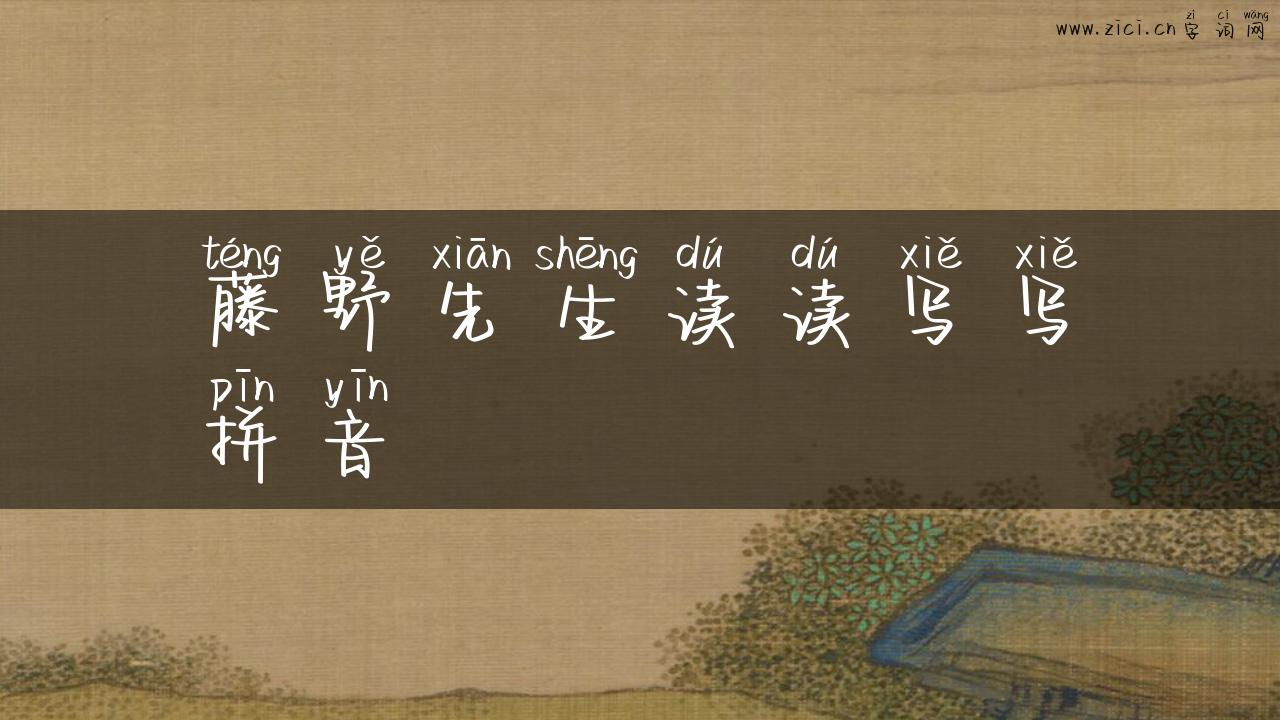 zì cí wǎng
www.zici.cn 字词网
téng yě xiān shēng dú dú xiě xiě
藤野先生读读写写
pīn yīn
拼音